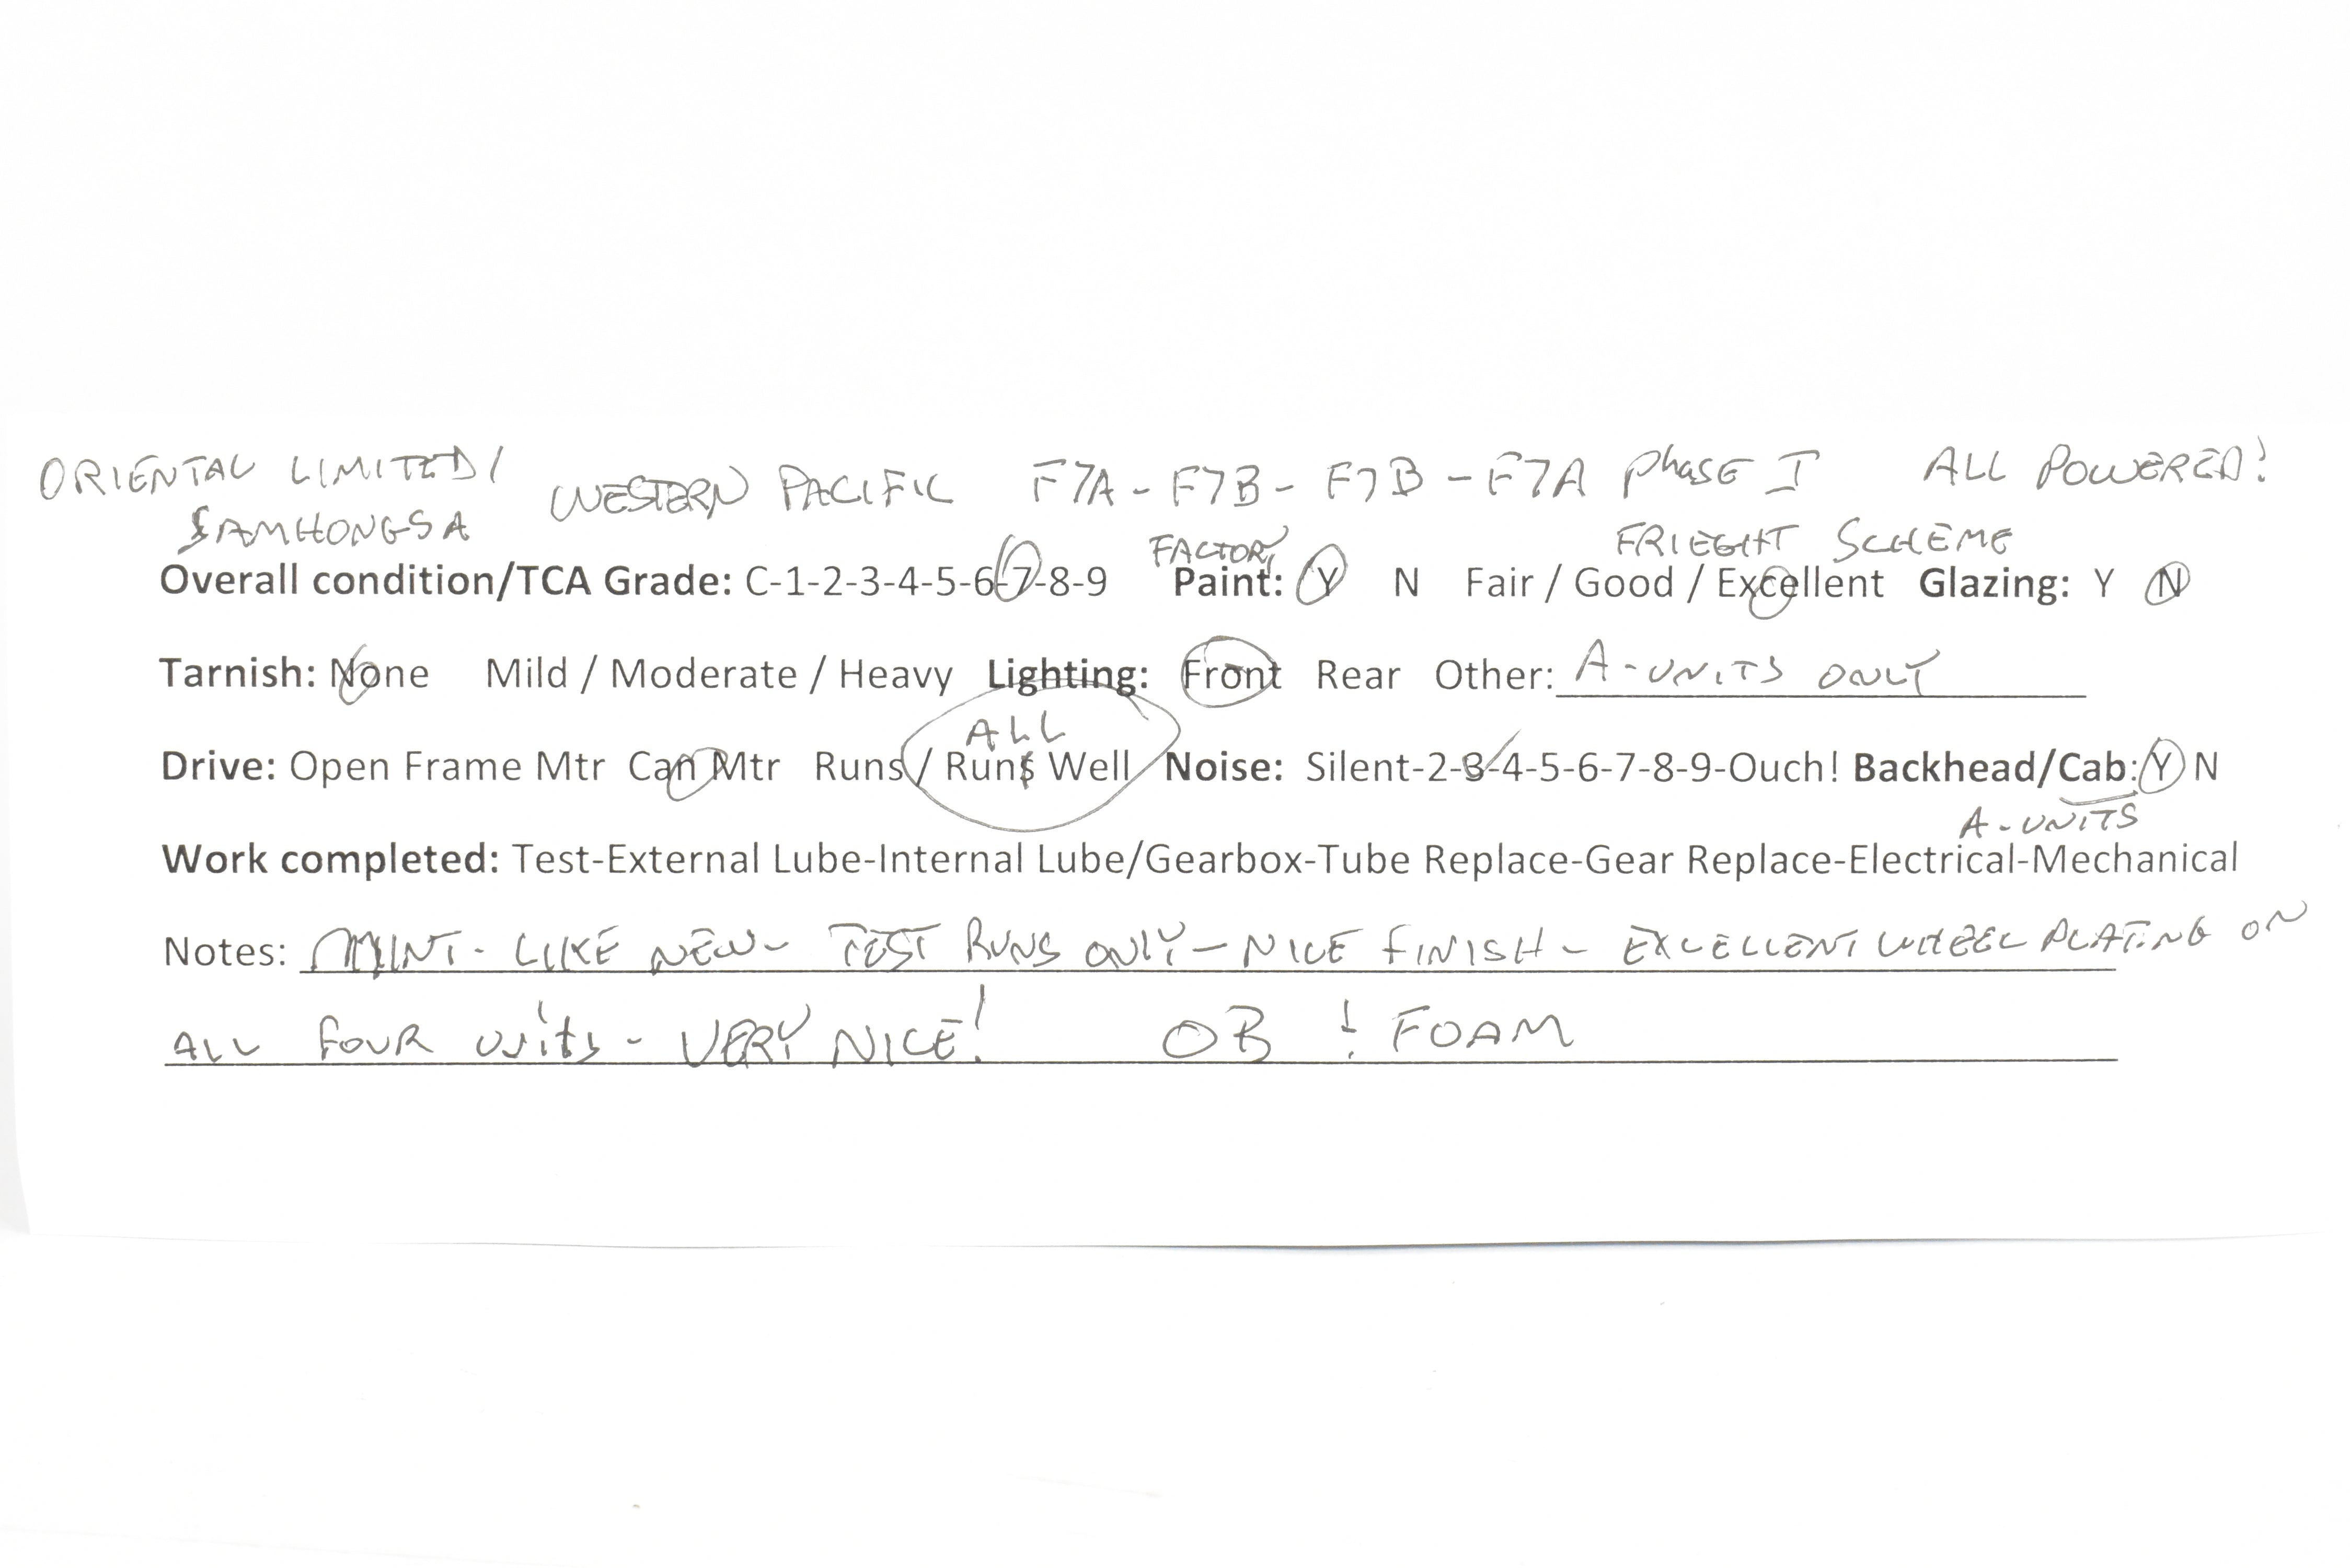 ORIENTAL LIMITED/ WESTERN PACIFIC F7A - F7B - F7B - F7A PhASE I ALL POWERED!
SAMHONGSA FACTORY FRIEGHT SCHEME
Overall condition/TCA Grade: C-1-2-3-4-5-6-7-8-9 Paint: Y N Fair / Good / Excellent Glazing: Y N
Tarnish: None Mild / Moderate / Heavy Lighting: Front Rear Other: A-UNITS ONLY
ALL
Drive: Open Frame Mtr Can Mtr Runs / Runs Well Noise: Silent-2-3-4-5-6-7-8-9-Ouch! Backhead/Cab: Y N
A-UNITS
Work completed: Test-External Lube-Internal Lube/Gearbox-Tube Replace-Gear Replace-Electrical-Mechanical
Notes: MINT - LIKE NEW - TEST RUNS ONLY - NICE FINISH - EXCELLENT WHEEL PLATING ON
ALL FOUR UNits - VERY NICE! OB ! FOAM